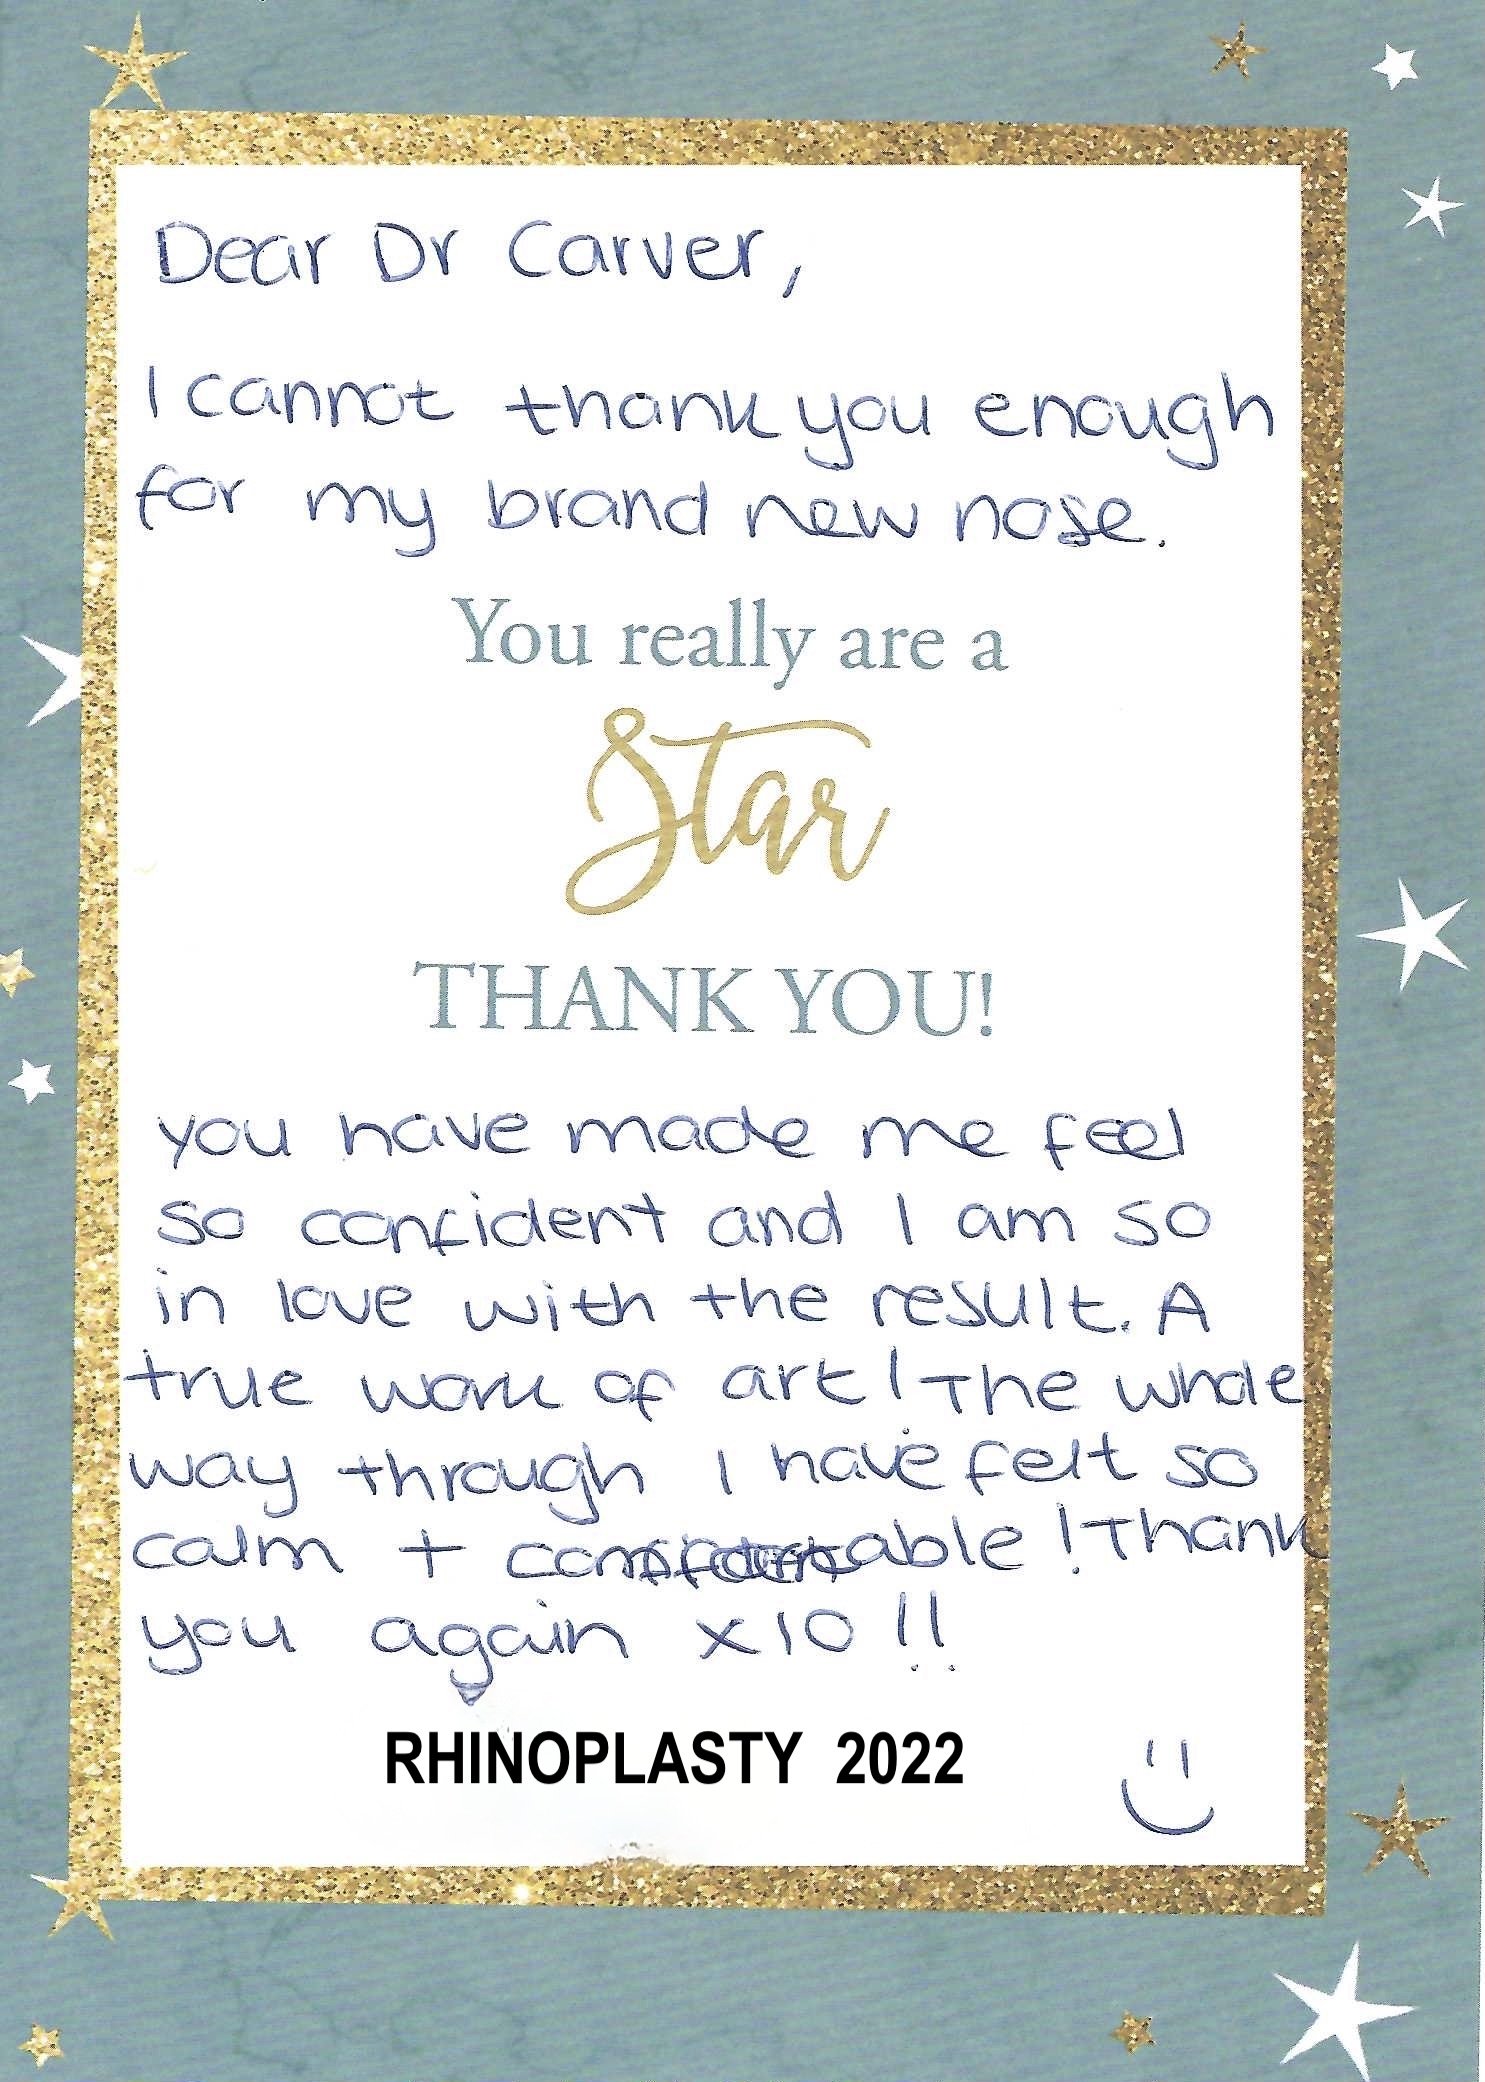 Dear Dr Carver,
I cannot thank you enough
for my brand new nose.
You really are a
Star
THANK YOU!
you have made me feel
so confident and I am so
in love with the result. A
true work of art! The whole
way through I have felt so
calm + comfortable! Thank
you again x10!!
RHINOPLASTY 2022